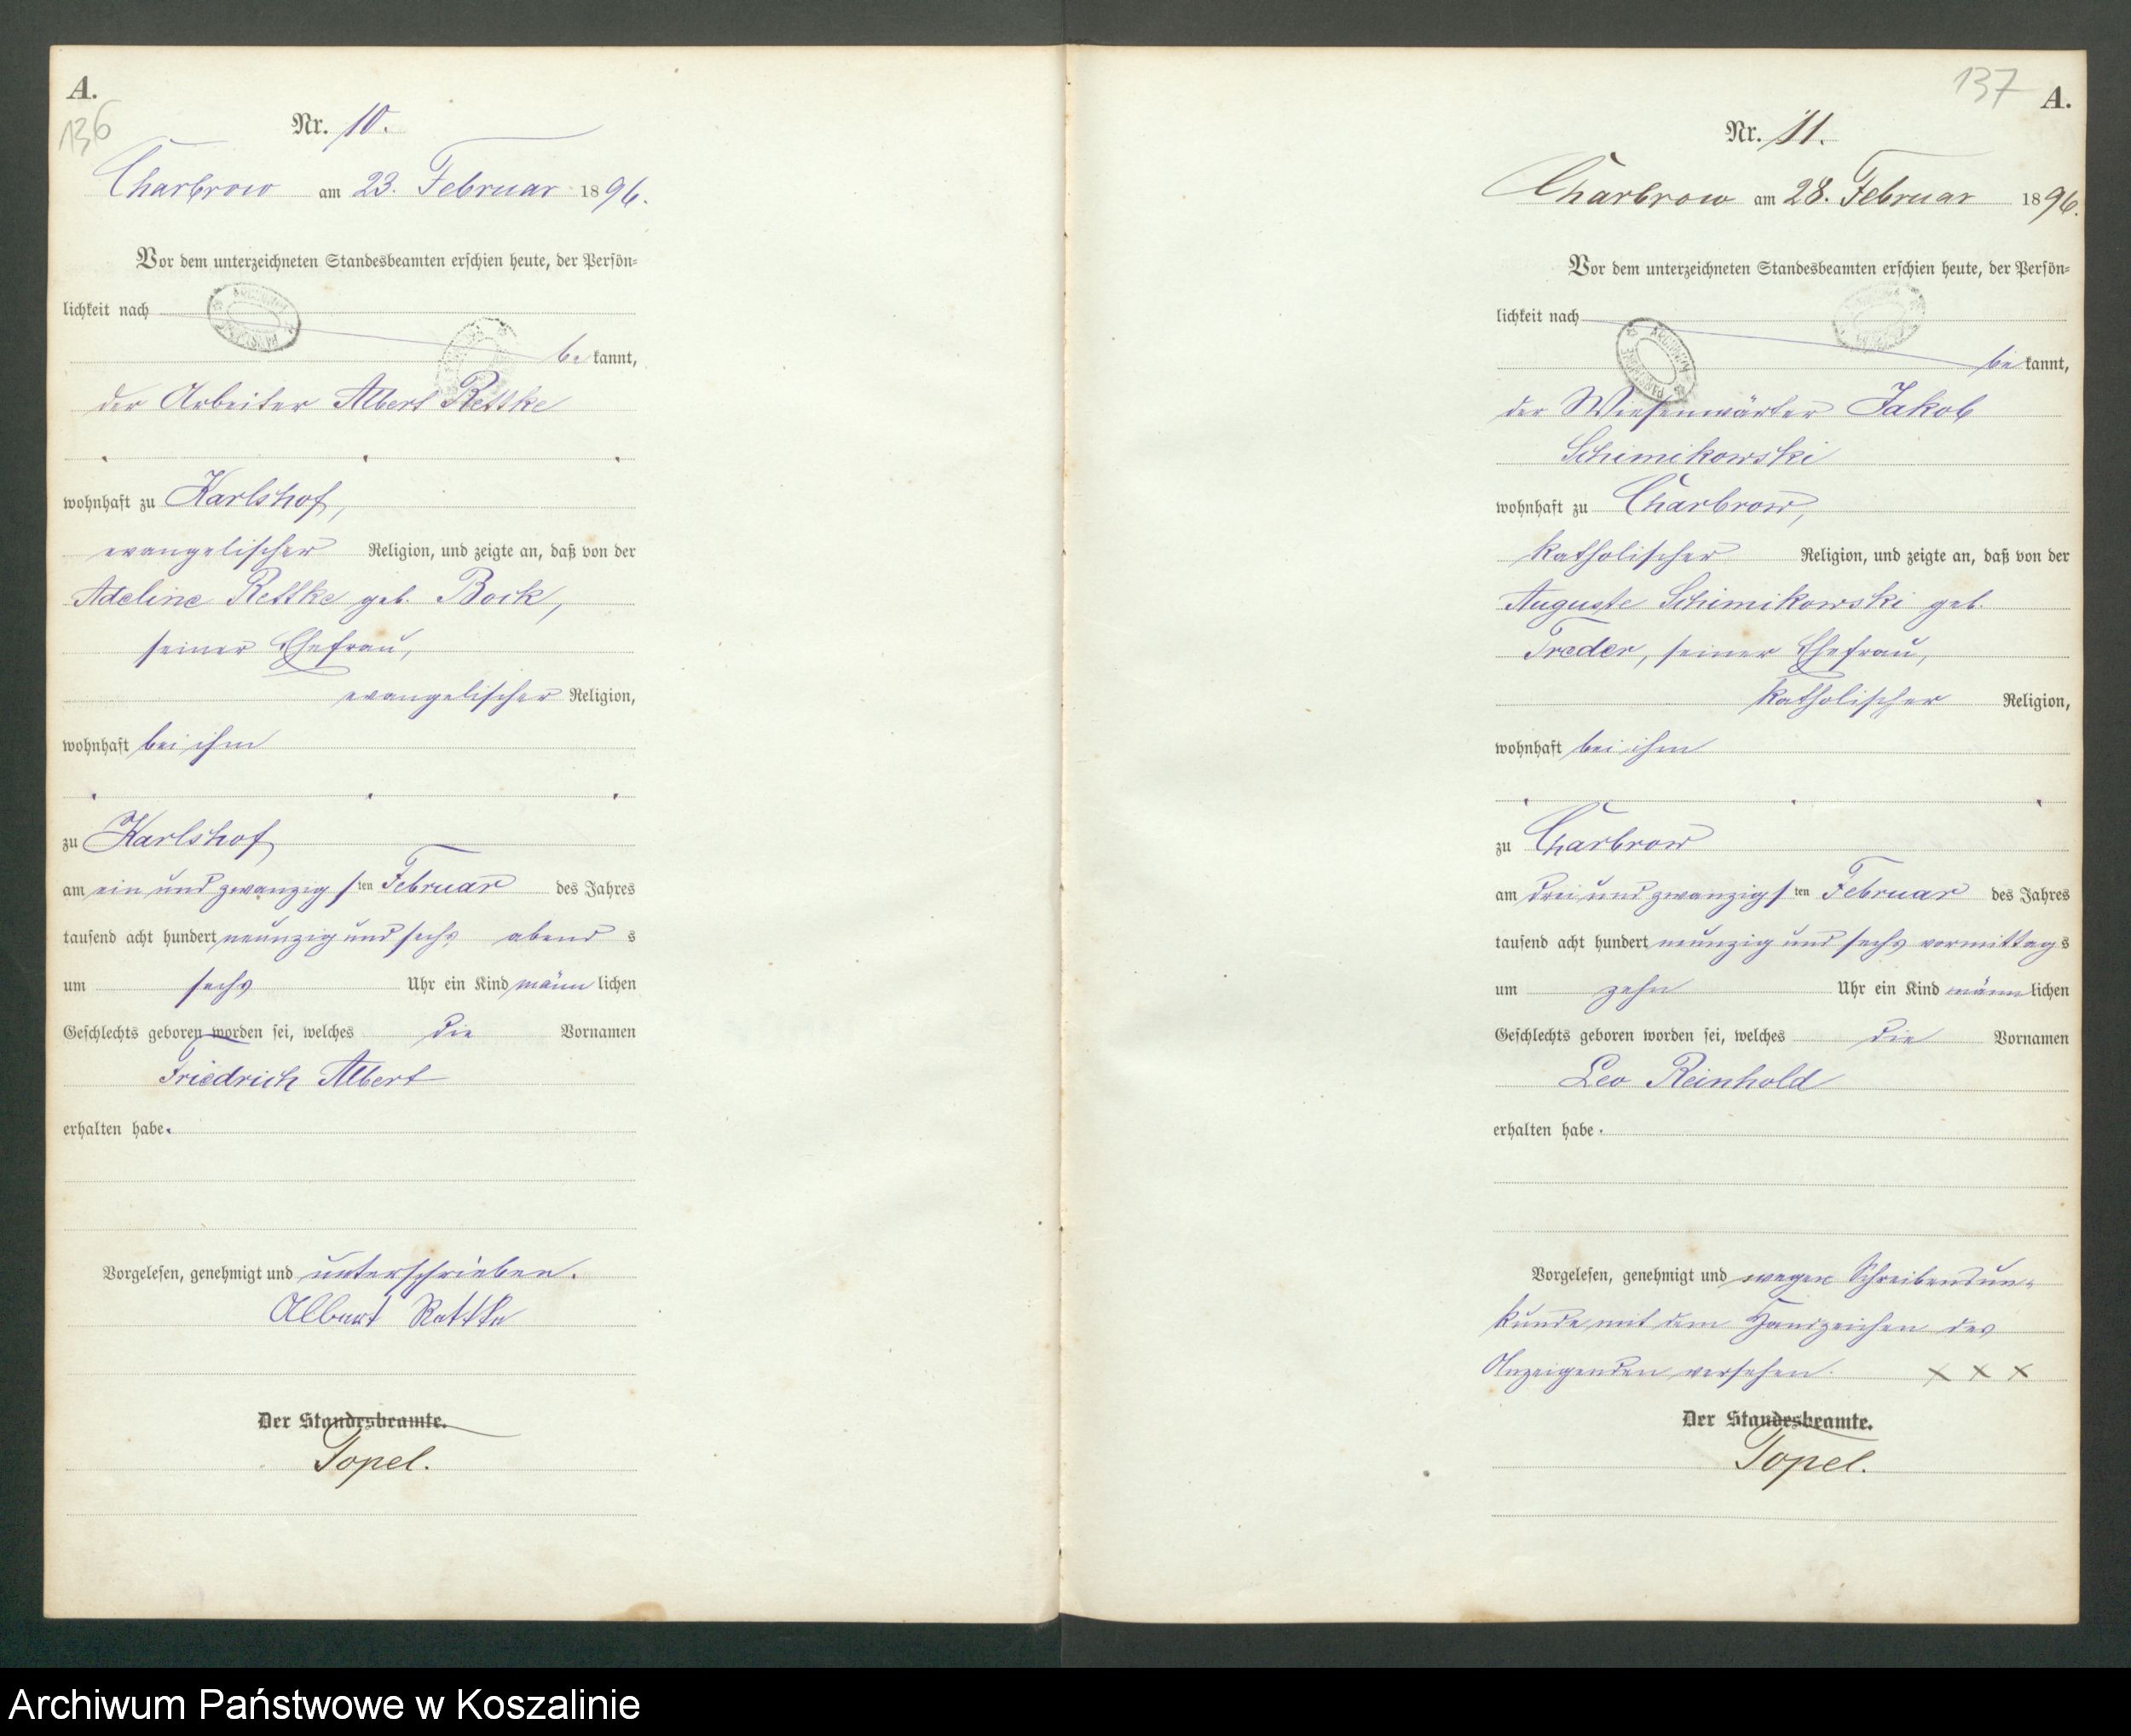 A.
136
Nr. 10.
Charbrow am 23. Februar 1896.
Vor dem unterzeichneten Standesbeamten erschien heute, der Persön-
lichkeit nach
be kannt,
der Arbeiter Albert Rettke
wohnhaft zu Karlshof,
evangelischer Religion, und zeigte an, daß von der
Adeline Rettke geb. Bock,
seiner Ehefrau,
evangelischer Religion,
wohnhaft bei ihm
zu Karlshof
am ein und zwanzigsten Februar des Jahres
tausend acht hundert neunzig und sechs abends
um sechs Uhr ein Kind männlichen
Geschlechts geboren worden sei, welches die Vornamen
Friedrich Albert
erhalten habe.
Vorgelesen, genehmigt und unterschrieben.
Albert Rettke
Der Standesbeamte.
Topel.
137
A.
Nr. 11.
Charbrow am 28. Februar 1896.
Vor dem unterzeichneten Standesbeamten erschien heute, der Persön-
lichkeit nach
be kannt,
der Wiesenwärter Jakob
Schimikowski
wohnhaft zu Charbrow,
katholischer Religion, und zeigte an, daß von der
Auguste Schimikowski geb.
Treder, seiner Ehefrau,
katholischer Religion,
wohnhaft bei ihm
zu Charbrow
am drei und zwanzigsten Februar des Jahres
tausend acht hundert neunzig und sechs vormittags
um zehn Uhr ein Kind männlichen
Geschlechts geboren worden sei, welches die Vornamen
Leo Reinhold
erhalten habe.
Vorgelesen, genehmigt und wegen Schreibensun-
kunde mit dem Handzeichen des
Anzeigenden versehen. x x x
Der Standesbeamte.
Topel.
Archiwum Państwowe w Koszalinie